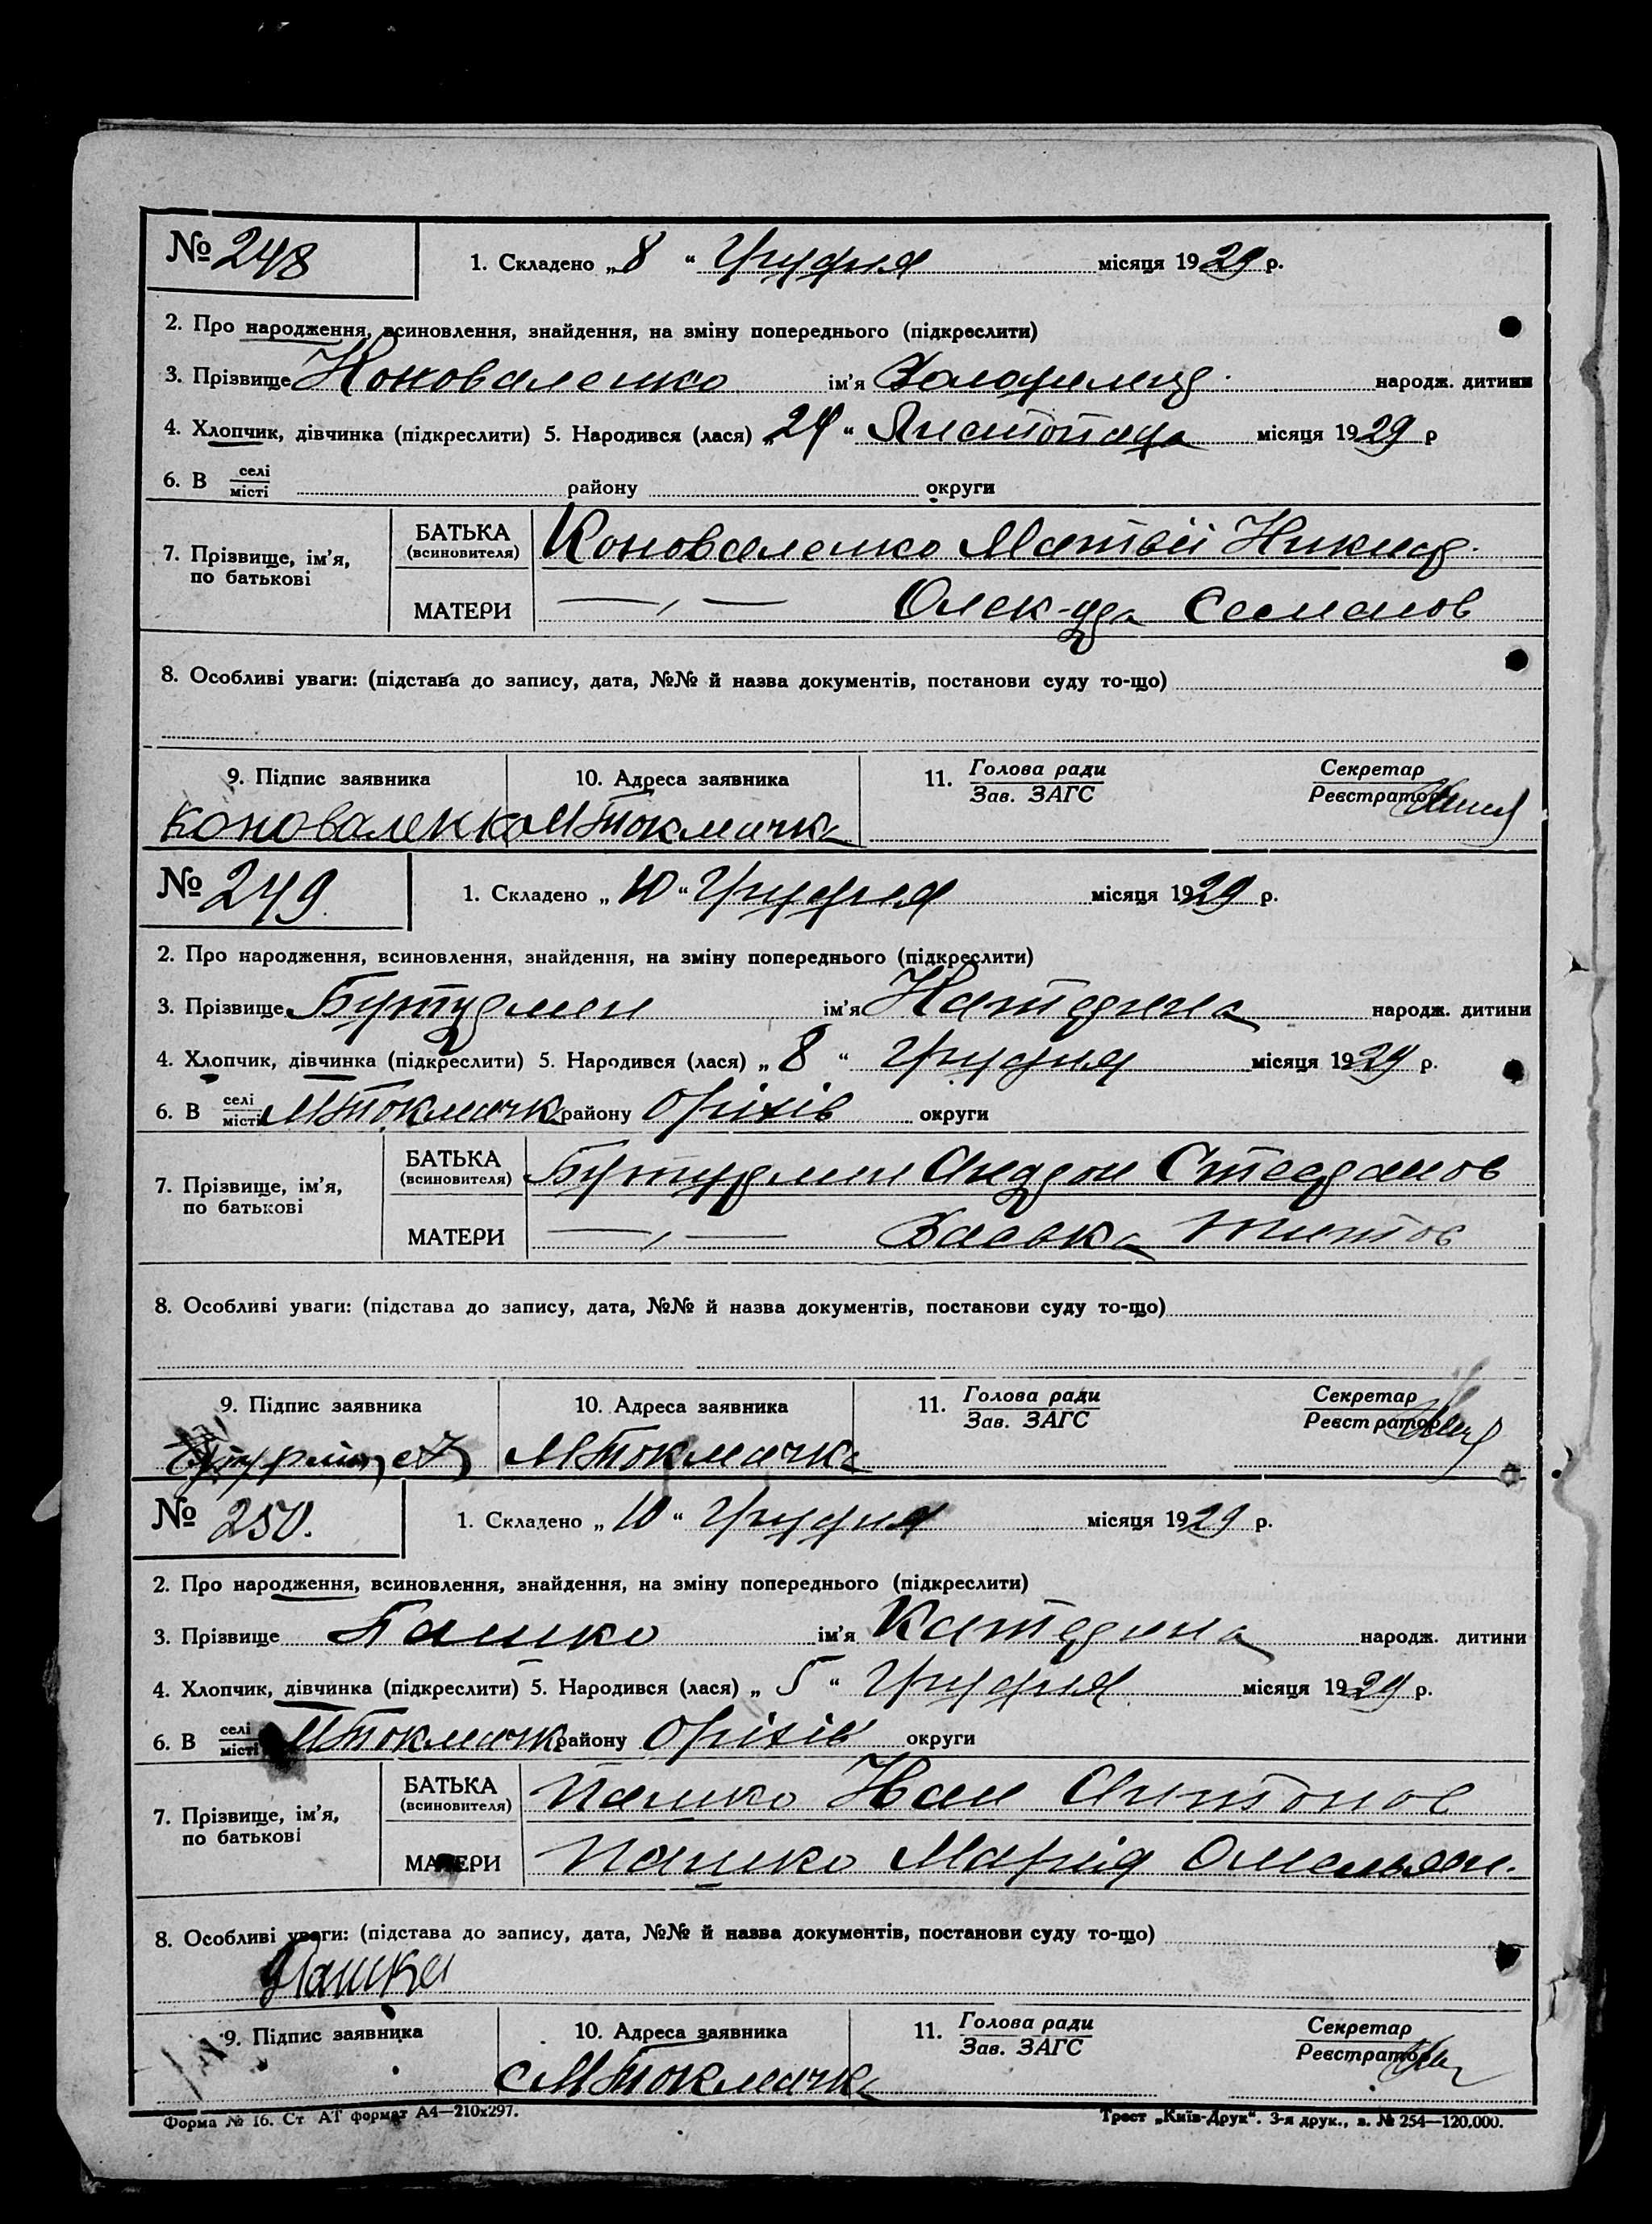 № 248 1. Складено „8“ Грудня місяця 1929 р.
2. Про народження, всиновлення, знайдення, на зміну попереднього (підкреслити)
3. Прізвище Коноваленко ім'я Володимир народж. дитини
4. Хлопчик, дівчинка (підкреслити) 5. Народився (лася) „24“ Листопада місяця 1929 р
6. В селі місті району округи
7. Прізвище, ім'я, по батькові БАТЬКА (всиновителя) Коноваленко Матвій Никиф.
МАТЕРИ —,— Олек-дра Семенов
8. Особливі уваги: (підстава до запису, дата, №№ й назва документів, постанови суду то-що)
9. Підпис заявника 10. Адреса заявника 11. Голова ради Зав. ЗАГС Секретар Реєстратор
Коноваленко МТокмачка
№ 249. 1. Складено „10“ Грудня місяця 1929 р.
2. Про народження, всиновлення, знайдення, на зміну попереднього (підкреслити)
3. Прізвище Бутурлин ім'я Катерина народж. дитини
4. Хлопчик, дівчинка (підкреслити) 5. Народився (лася) „8“ Грудня місяця 1929 р.
6. В селі місті МТокмачк району Оріхів округи
7. Прізвище, ім'я, по батькові БАТЬКА (всиновителя) Бутурлин Андрон Стефанов
МАТЕРИ —,— Васька Титов
8. Особливі уваги: (підстава до запису, дата, №№ й назва документів, постанови суду то-що)
9. Підпис заявника 10. Адреса заявника 11. Голова ради Зав. ЗАГС Секретар Реєстратор
МТокмачка
№ 250. 1. Складено „10“ Грудня місяця 1929 р.
2. Про народження, всиновлення, знайдення, на зміну попереднього (підкреслити)
3. Прізвище Пашко ім'я Катерина народж. дитини
4. Хлопчик, дівчинка (підкреслити) 5. Народився (лася) „5“ Грудня місяця 1929 р.
6. В селі місті МТокмачк району Оріхів округи
7. Прізвище, ім'я, по батькові БАТЬКА (всиновителя) Пашко Иван Антонов
МАТЕРИ Пашко Марія Омельян.
8. Особливі уваги: (підстава до запису, дата, №№ й назва документів, постанови суду то-що)
Пашко
9. Підпис заявника 10. Адреса заявника 11. Голова ради Зав. ЗАГС Секретар Реєстратор
с МТокмачка
Форма № 16. Ст АТ формат А4—210х297. Трест „Київ-Друк“. 3-я друк., з. № 254—120.000.